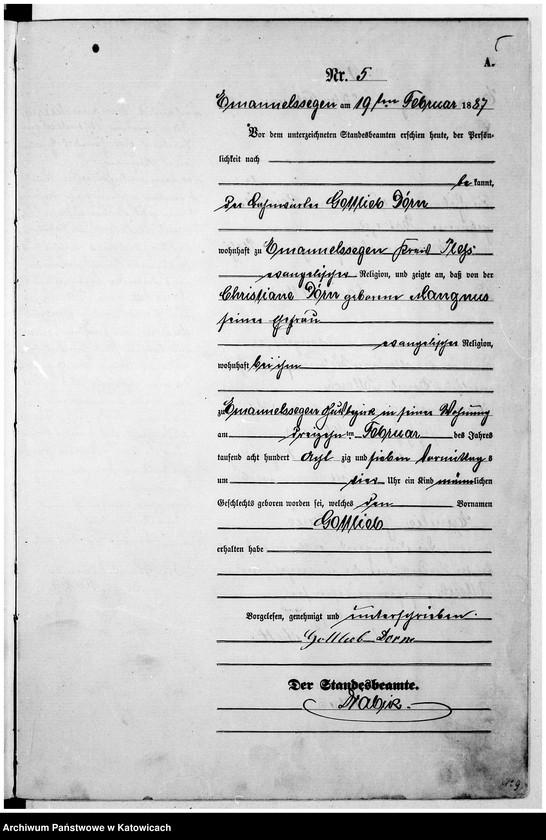 5
A.
Nr. 5
Emannelssegen am 19ten Februar 1887
Vor dem unterzeichneten Standesbeamten erschien heute, der Persön-
lichkeit nach
be kannt,
der Gottlieb Dörn
wohnhaft zu Emannelssegen Kreis Pleß
evangelischer Religion, und zeigte an, daß von der
Christiane Dörn geborene Mangnus
seiner Ehefrau
evangelischer Religion,
wohnhaft bei ihm
zu Emannelssegen in seiner Wohnung
am dreizehn ten Februar des Jahres
tausend acht hundert acht zig und sieben Vormittags
um vier Uhr ein Kind männlichen
Geschlechts geboren worden sei, welches den Vornamen
Gottlieb
erhalten habe
Vorgelesen, genehmigt und unterschrieben.
Gottlieb Dorn
Der Standesbeamte.
Archiwum Państwowe w Katowicach